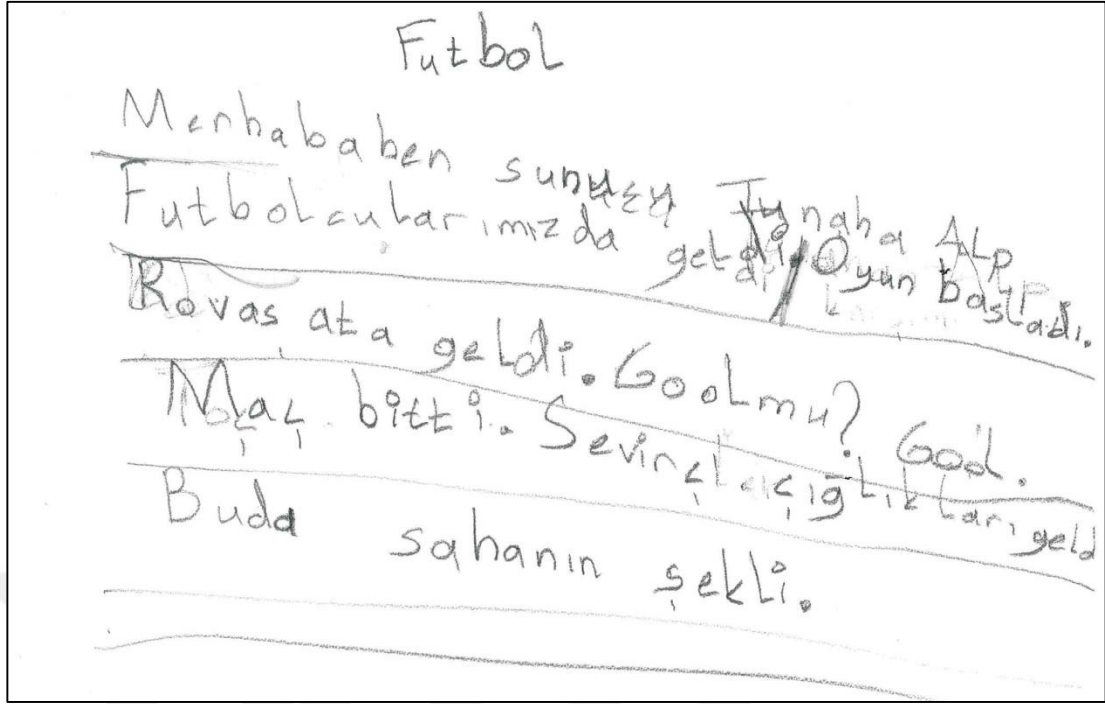 Futbol
Merhababen sunucu Tunaha ALP.
Futbolcularımızda geldi. Oyun başladı.
Rovaş ata geldi. Goolmu? Gool.
Maç bitti. Sevinçlçığlıkları geld
Buda sahanın şekli.